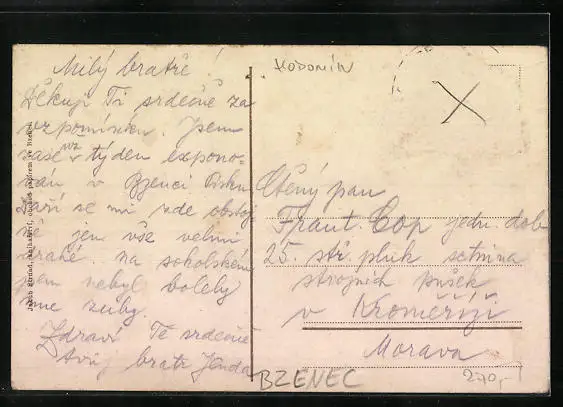 Milý bratře!
Děkuji Ti srdečně za
vzpomínku. Jsem
zase už týden expono-
ván v Bzenci Písku
Daří se mi zde obstoj
ně jen vše velmi
drahé. na sokolském
jsem nebyl bolely
mne zuby.
Zdraví Te srdečně
Tvůj bratr Jenda
HODONÍN
X
Ctěný pan
Frant. Čop jedn. dob.
25. stř. pluk setnina
strojních pušek
v Kroměříži
Morava
BZENEC
270,-